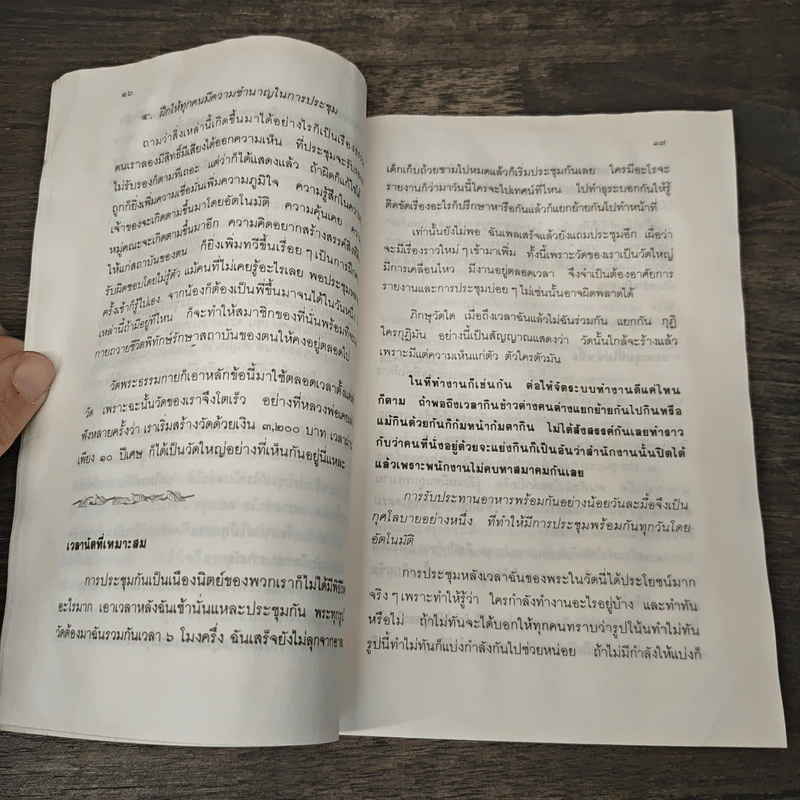 ๑๖
๔. ฝึกให้ทุกคนมีความชำนาญในการประชุม
ถามว่าสิ่งเหล่านี้เกิดขึ้นมาได้อย่างไรก็เป็นเรื่อง
คนเราลองมีสิทธิ์มีเสียงได้ออกความเห็น ที่ประชุมจะรับ
ไม่รับรองก็ตามทีเถอะ แต่ว่าก็ได้แสดงแล้ว ถ้าผิดก็แก้ไขได้
ถูกก็ยิ่งเพิ่มความเชื่อมั่นเพิ่มความภูมิใจ ความรู้สึกในความ
เจ้าของจะเกิดตามขึ้นมาโดยอัตโนมัติ ความคุ้นเคย
หมู่คณะจะเกิดตามขึ้นมาอีก ความคิดอยากสร้างสรรค์สิ่งที่
ให้แก่สถาบันของตน ก็ยิ่งเพิ่มทวีขึ้นเรื่อยๆ เป็นการฝึก
รับผิดชอบโดยไม่รู้ตัว แม้คนที่ไม่เคยรู้อะไรเลย พอประชุม
ครั้งเข้าก็รู้ไปเอง จากน้องก็ต้องเป็นพี่ขึ้นมาจนได้ในวันหนึ่ง
เหล่านี้ถ้ามีอยู่ที่ไหน ก็จะทำให้สมาชิกของที่นั่นพร้อมที่จะ
กายถวายชีวิตพิทักษ์รักษาสถาบันของตนให้คงอยู่ตลอดไป
วัดพระธรรมกายก็เอาหลักข้อนี้มาใช้ตลอดเวลาตั้งแต่
วัด เพราะฉะนั้นวัดของเราจึงโตเร็ว อย่างที่หลวงพ่อเคย
ฟังหลายครั้งว่า เราเริ่มสร้างวัดด้วยเงิน ๓,๒๐๐ บาท เวลาผ่าน
เพียง ๑๐ ปีเศษ ก็ได้เป็นวัดใหญ่อย่างที่เห็นกันอยู่นี่แหละ
เวลานัดที่เหมาะสม
การประชุมกันเป็นเนืองนิตย์ของพวกเราก็ไม่ได้มีพิธีรีต
อะไรมาก เอาเวลาหลังฉันเช้านั่นแหละประชุมกัน พระทุกรูป
วัดต้องมาฉันรวมกันเวลา ๖ โมงครึ่ง ฉันเสร็จยังไม่ลุกจากอาส
๑๗
เด็กเก็บถ้วยชามไปหมดแล้วก็เริ่มประชุมกันเลย ใครมีอะไรจะ
รายงานก็ว่ามาวันนี้ใครจะไปเทศน์ที่ไหน ไปทำธุระบอกกันให้รู้
ติดขัดเรื่องอะไรก็ปรึกษาหารือกันแล้วก็แยกย้ายกันไปทำหน้าที่
เท่านั้นยังไม่พอ ฉันเพลเสร็จแล้วยังแถมประชุมอีก เผื่อว่า
จะมีเรื่องราวใหม่ๆ เข้ามาเพิ่ม ทั้งนี้เพราะวัดของเราเป็นวัดใหญ่
มีการเคลื่อนไหว มีงานอยู่ตลอดเวลา จึงจำเป็นต้องอาศัยการ
รายงานและการประชุมบ่อยๆ ไม่เช่นนั้นอาจผิดพลาดได้
ภิกษุวัดใด เมื่อถึงเวลาฉันแล้วไม่ฉันร่วมกัน แยกกัน กุฏิ
ใครกุฏิมัน อย่างนี้เป็นสัญญาณแสดงว่า วัดนั้นใกล้จะร้างแล้ว
เพราะมีแต่ความเห็นแก่ตัว ตัวใครตัวมัน
ในที่ทำงานก็เช่นกัน ต่อให้จัดระบบทำงานดีแค่ไหน
ก็ตาม ถ้าพอถึงเวลากินข้าวต่างคนต่างแยกย้ายกันไปกินหรือ
แม้กินด้วยกันก็ก้มหน้าก้มตากิน ไม่ได้สังสรรค์กันเลยทำราว
กับว่าคนที่นั่งอยู่ด้วยจะแย่งกินก็เป็นอันว่าสำนักงานนั้นปิดได้
แล้วเพราะพนักงานไม่คบหาสมาคมกันเลย
การรับประทานอาหารพร้อมกันอย่างน้อยวันละมื้อจึงเป็น
กุศโลบายอย่างหนึ่ง ที่ทำให้มีการประชุมพร้อมกันทุกวันโดย
อัตโนมัติ
การประชุมหลังเวลาฉันของพระในวัดนี้ได้ประโยชน์มาก
จริงๆ เพราะทำให้รู้ว่า ใครกำลังทำงานอะไรอยู่บ้าง และทำทัน
หรือไม่ ถ้าไม่ทันจะได้บอกให้ทุกคนทราบว่ารูปโน้นทำไม่ทัน
รูปนี้ทำไม่ทันก็แบ่งกำลังกันไปช่วยหน่อย ถ้าไม่มีกำลังให้แบ่งก็